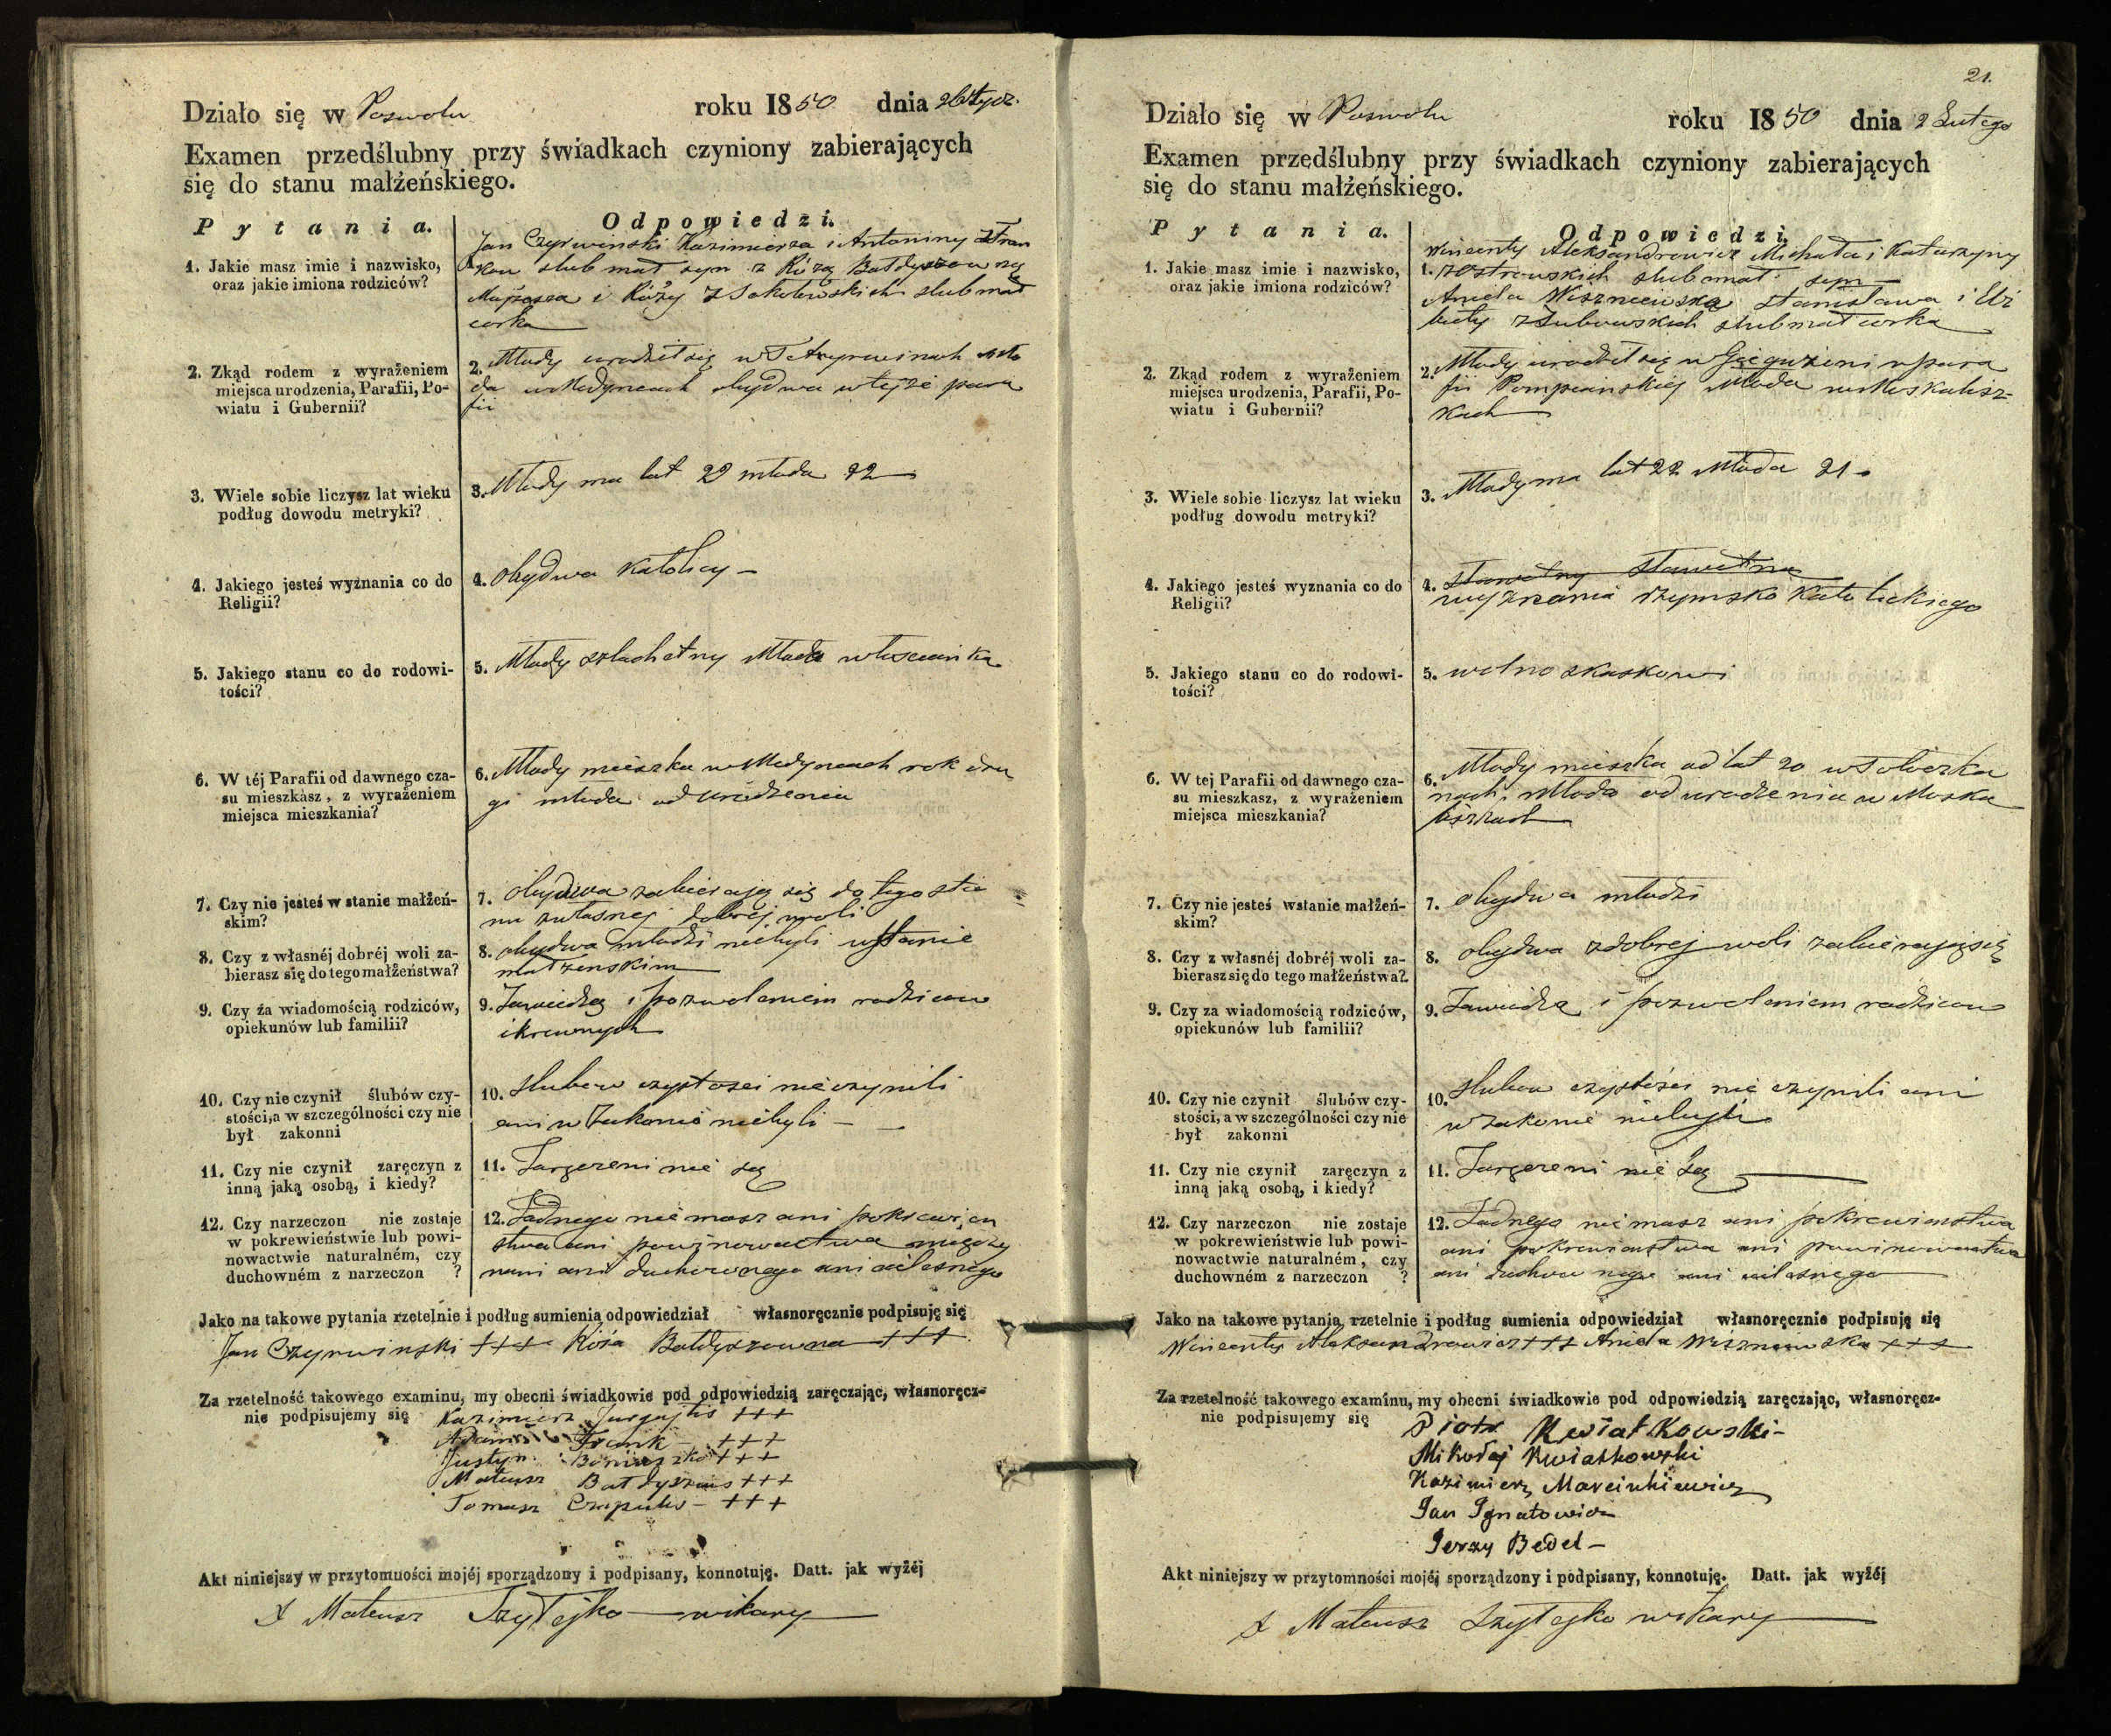 Działo się w Poswolu roku 1850 dnia 26 Stycz.
Examen przedślubny przy świadkach czyniony zabierających
się do stanu małżeńskiego.
Pytania. Odpowiedzi.
1. Jakie masz imie i nazwisko,
oraz jakie imiona rodziców?
Jan Czyrwinski Kazimierza i Antoniny z Fran
kow slub mał syn z Różą Bałdyszowną
i Róży z Sokołowskich slub mał
corka
2. Zkąd rodem z wyrażeniem
miejsca urodzenia, Parafii, Po-
wiatu i Gubernii?
2. Młody urodził się w Mło
da w Medyncach obydwa w tejże para
fii
3. Wiele sobie liczysz lat wieku
podług dowodu metryki?
3. Młody ma lat 29 młoda 22
4. Jakiego jesteś wyznania co do
Religii?
4. obydwa Katolicy —
5. Jakiego stanu co do rodowi-
tości?
5. Młody szlachetny Młoda włoscianka
6. W téj Parafii od dawnego cza-
su mieszkasz, z wyrażeniem
miejsca mieszkania?
6. Młody mieszka w Medyncach rok dru
gi młoda od urodzenia
7. Czy nie jesteś w stanie małżeń-
skim?
7. Obydwa zabierają się do tego sta
nu z własnej dobrej woli
8. Czy z własnéj dobréj woli za-
bierasz się do tego małżeństwa?
8. obydwa młodzi niebyli w stanie
małzenskim
9. Czy za wiadomością rodziców,
opiekunów lub familii?
9. Zawiedzą i pozwoleniem rodzicow
i krewnych
10. Czy nie czynił ślubów czy-
stości, a w szczególności czy nie
był zakonni
10. slubow czystosci nie czynili
ani w Zakonie niebyli —
11. Czy nie czynił zaręczyn z
inną jaką osobą, i kiedy?
11. Zaręczeni nie są
12. Czy narzeczon nie zostaje
w pokrewieństwie lub powi-
nowactwie naturalném, czy
duchowném z narzeczon ?
12. Żadnego nie masz ani pokrewien
stwa ani powinowactwa między
nami ani duchownego ani cielesnego
Jako na takowe pytania rzetelnie i podług sumienia odpowiedział własnoręcznie podpisuję się
Jan Czyrwinski +++ Róża Bałdyszowna +++
Za rzetelność takowego examinu, my obecni świadkowie pod odpowiedzią zaręczając, własnoręcz-
nie podpisujemy się Kazimierz Jurgajtis +++
Adam Frank — +++
Justyn +++
Mateusz Bałdyszus +++
Tomasz Czapulis — +++
Akt niniejszy w przytomności mojéj sporządzony i podpisany, konnotuję. Datt. jak wyżéj
X Mateusz Szyłejko wikary
21.
Działo się w Poswolu roku 1850 dnia 2 Lutego
Examen przedślubny przy świadkach czyniony zabierających
się do stanu małżeńskiego.
Pytania. Odpowiedzi.
1. Jakie masz imie i nazwisko,
oraz jakie imiona rodziców?
Wincenty Aleksandrowicz Michała i Katarzyny
1. z Ostrowskich slub mał syn
Aniela Wiszniewska Stanisława i Elż
biety z Żubowskich slub mał corka
2. Zkąd rodem z wyrażeniem
miejsca urodzenia, Parafii, Po-
wiatu i Gubernii?
2. Młody urodził się w w para
fii Pompianskiej Młoda w Moskalisz-
kach
3. Wiele sobie liczysz lat wieku
podług dowodu metryki?
3. Młody ma lat 22 Młoda 21
4. Jakiego jesteś wyznania co do
Religii?
4. Sławetny Sławetna
wyznania rzymsko Katolickiego
5. Jakiego stanu co do rodowi-
tości?
5. wolno skaskowi
6. W tej Parafii od dawnego cza-
su mieszkasz, z wyrażeniem
miejsca mieszkania?
6. Młody mieszka od lat 20 w Toloczka
nach, Młoda od urodzenia w Moska
liszkach
7. Czy nie jesteś wstanie małżeń-
skim?
7. obydwa młodzi
8. Czy z własnéj dobréj woli za-
bierasz się do tego małżeństwa?
8. obydwa z dobrej woli zabierają się
9. Czy za wiadomością rodziców,
opiekunów lub familii?
9. Zawiedzą i pozwoleniem rodzicow
10. Czy nie czynił ślubów czy-
stości, a w szczególności czy nie
był zakonni
10. slubow czystosci nie czynili ani
w zakonie niebyli
11. Czy nie czynił zaręczyn z
inną jaką osobą, i kiedy?
11. Zaręczeni nie są
12. Czy narzeczon nie zostaje
w pokrewieństwie lub powi-
nowactwie naturalném, czy
duchowném z narzeczon ?
12. Żadnego nie masz ani pokrewienstwa
ani pokrewienstwa ani powinowactwa
ani duchownego ani cielesnego
Jako na takowe pytania rzetelnie i podług sumienia odpowiedział własnoręcznie podpisuję się
Wincenty Aleksandrowicz +++ Aniela Wiszniewska +++
Za rzetelność takowego examinu, my obecni świadkowie pod odpowiedzią zaręczając, własnoręcz-
nie podpisujemy się Piotr Kwiatkowski —
Mikołaj Kwiatkowski
Kazimierz Marcinkiewicz
Jan Ignatowicz
Jerzy Bedel —
Akt niniejszy w przytomności mojéj sporządzony i podpisany, konnotuję. Datt. jak wyżéj
X Mateusz Szyłejko wikary